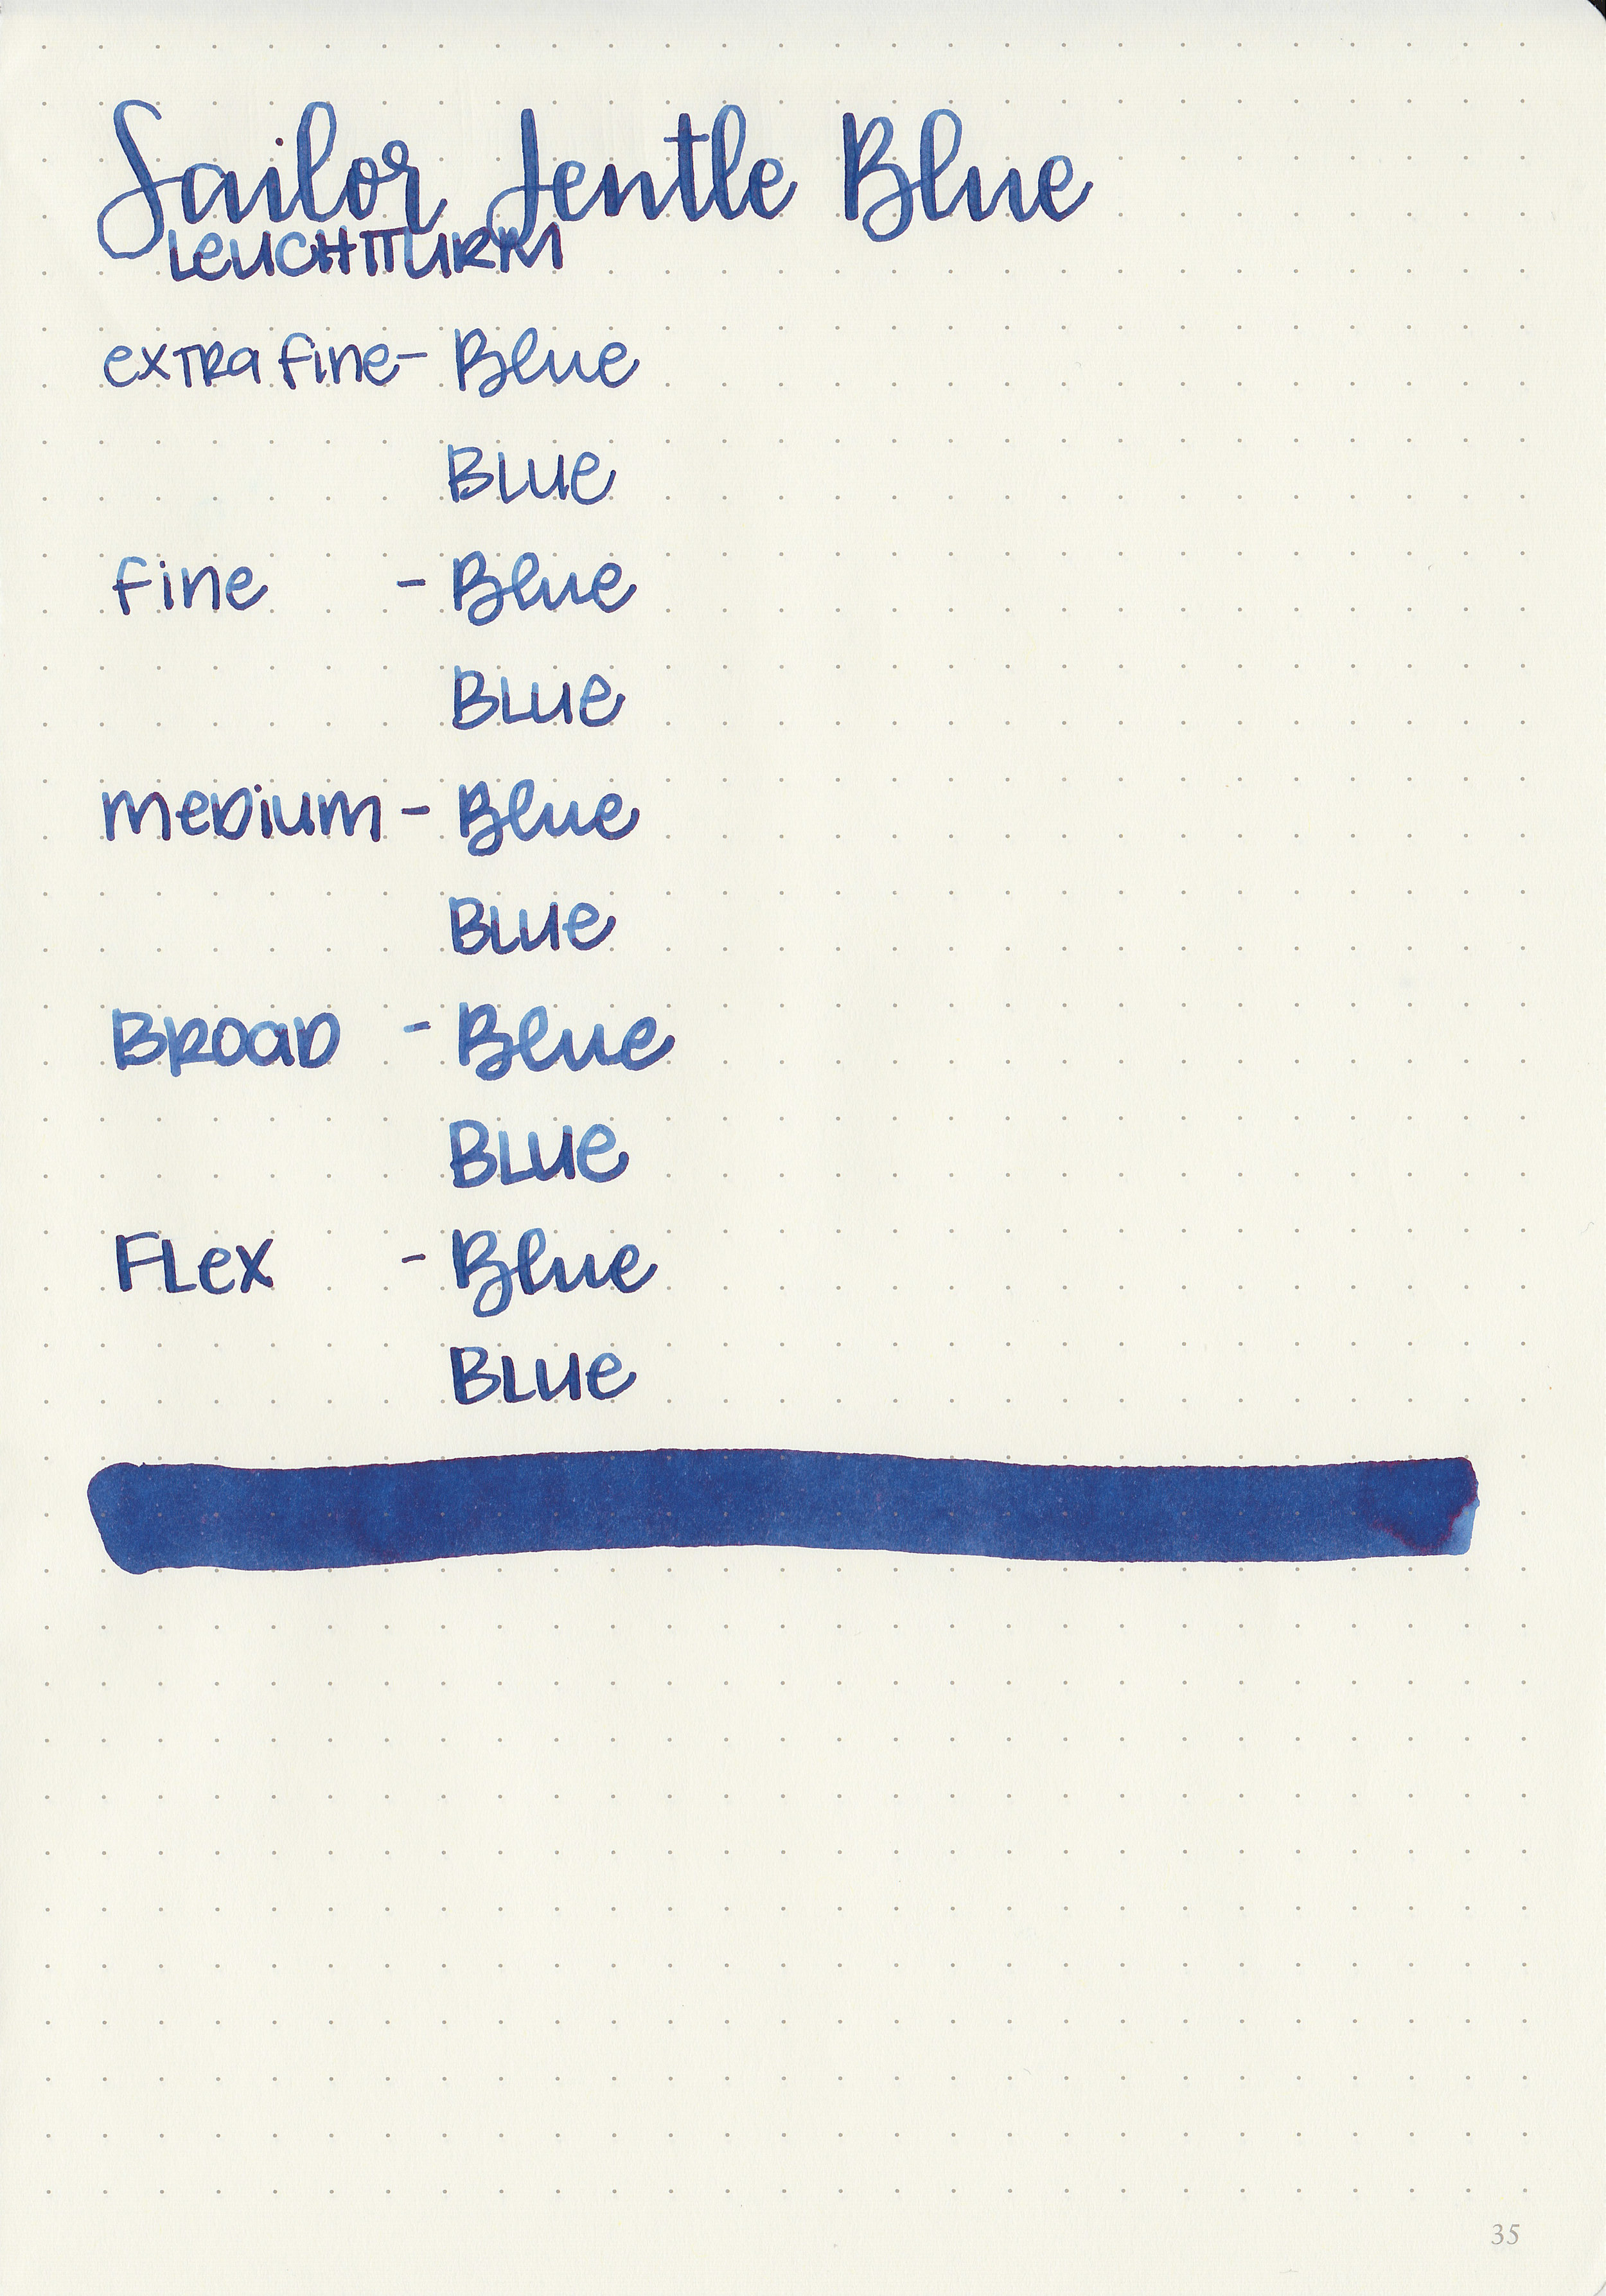 Sailor Jentle Blue
LEUCHTTURM
extra fine - Blue
Blue
fine - Blue
Blue
medium - Blue
Blue
Broad - Blue
Blue
Flex - Blue
Blue
35